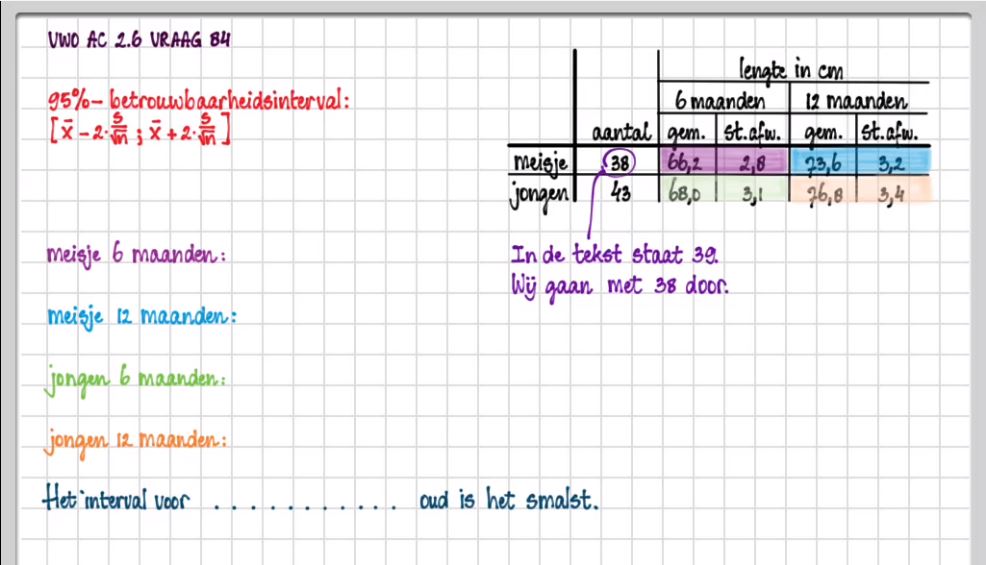 VWO AC 2.6 VRAAG 84
95%-betrouwbaarheidsinterval:
[x̄ - 2·s/√n ; x̄ + 2·s/√n]
lengte in cm
6 maanden 12 maanden
aantal gem. st.afw. gem. st.afw.
meisje 38 66,2 2,8 73,6 3,2
jongen 43 68,0 3,1 76,8 3,4
In de tekst staat 39.
Wij gaan met 38 door.
meisje 6 maanden:
meisje 12 maanden:
jongen 6 maanden:
jongen 12 maanden:
Het interval voor . . . . . . . . . . . . oud is het smalst.